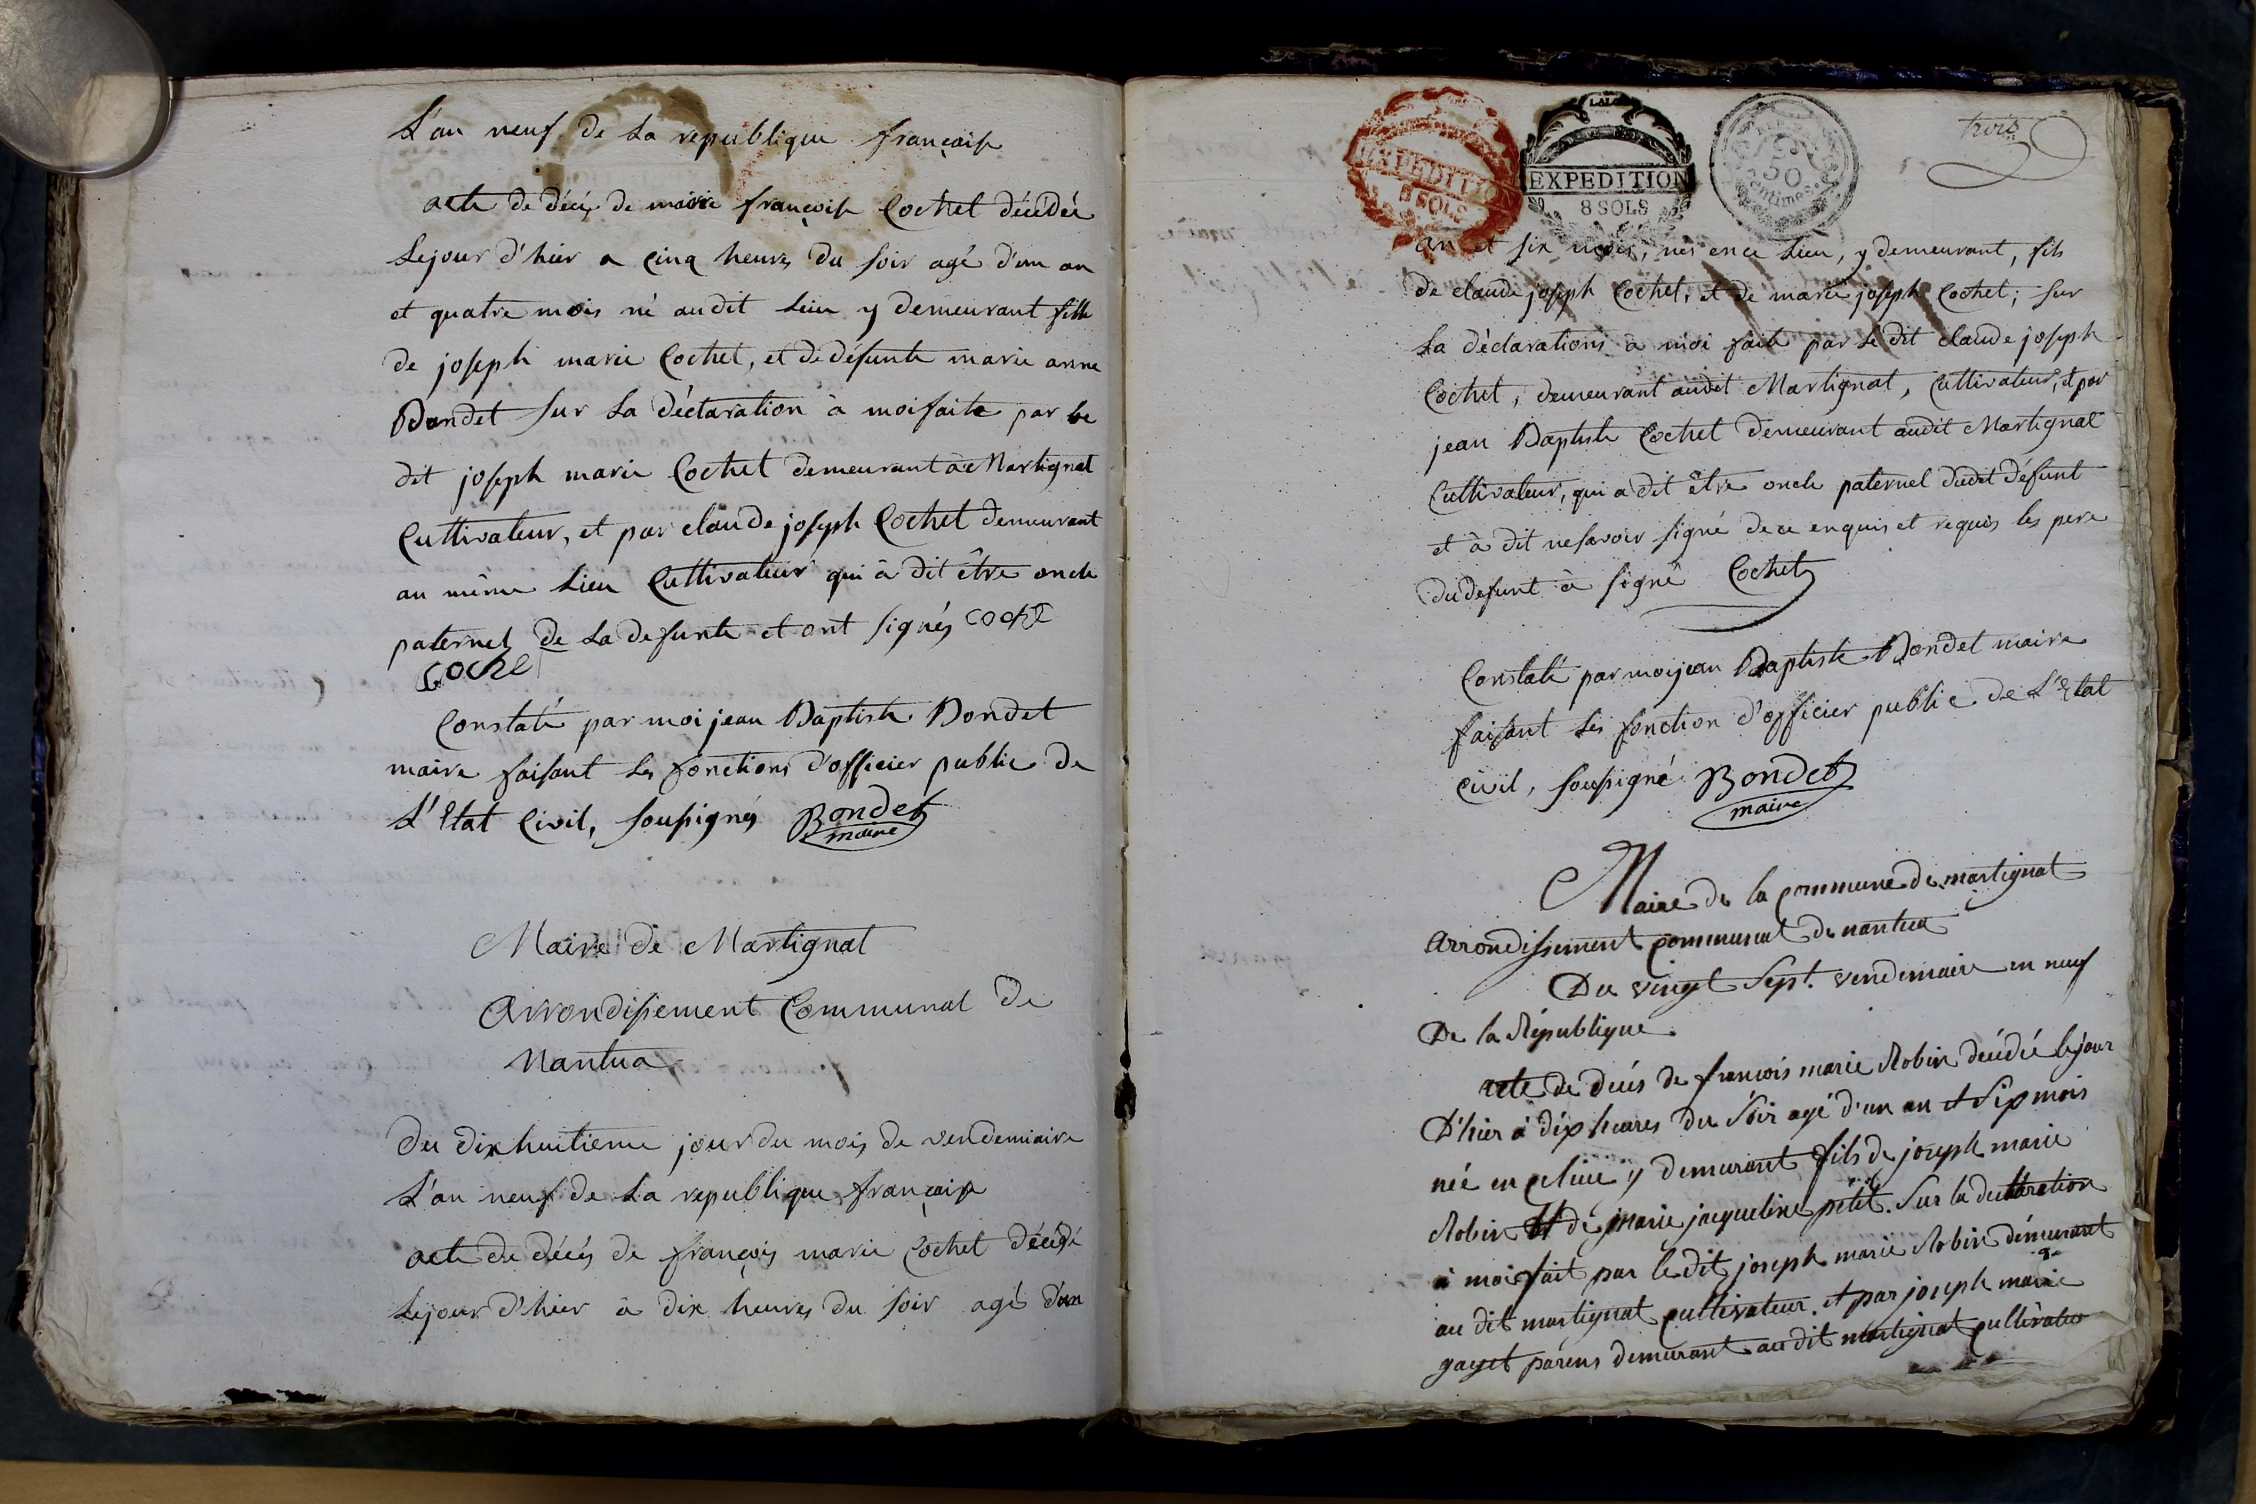 L'an neuf de la republique françaisse
acte de décès de marie françoise Cochet décédée
le jour d'hier a cinq heures du soir agé d'un an
et quatre mois né audit lieu y demeurant fille
de joseph marie Cochet, et de défunte marie anne
Bondet sur la déclaration à moi faite par le
dit joseph marie Cochet demeurant à Martignat
Cultivateur, et par claude joseph Cochet demeurant
au même lieu Cultivateur qui à dit être oncle
paternel de la defunte et ont signés
Constaté par moi jean Baptiste Bondet
maire faisant les fonctions d'officier public de
L'Etat Civil, soussignés Bondet
maire
Maire de Martignat
Arrondissement Communal de
Nantua
Du dix huitieme jour du mois de vendemiaire
L'an neuf de la republique française
acte de décès de françois marie Cochet décédé
le jour d'hier à dix heures du soir agé d'un
trois
EXPEDITION
8 SOLS
EXPEDITION
8 SOLS
50
centimes
an et six mois, nés en ce lieu, y demeurant, fils
de claude joseph Cochet, et de marie joseph Cochet; sur
la déclarations à moi faite par le dit claude joseph
Cochet, demeurant audit Martignat, Cultivateur, et par
jean Baptiste Cochet demeurant audit Martignat
Cultivateur, qui a dit être oncle paternel dudit défunt
et à dit ne savoir signé de ce enquis et requis les pere
du defunt à signé Cochet
Constaté par moi jean Baptiste Bondet maire
faisant les fonction d'officier public de L'Etat
Civil, soussigné Bondet
maire
Maire de la commune de martignat
arrondissement communal de nantua
Du vingt sept. vendemiaire an neuf
De la République
acte de decés de francois marie Robin décédé le jour
D'hier à dix heures du soir agé d'un an et six mois
née en ce lieu y demeurant fils de joseph marie
Robin et de marie jacqueline petit. Sur la declaration
à moi fait par le dit joseph marie Robin démeurant
au dit martignat cultivateur. et par joseph marie
gayet parens demeurant au dit martignat cultivateur